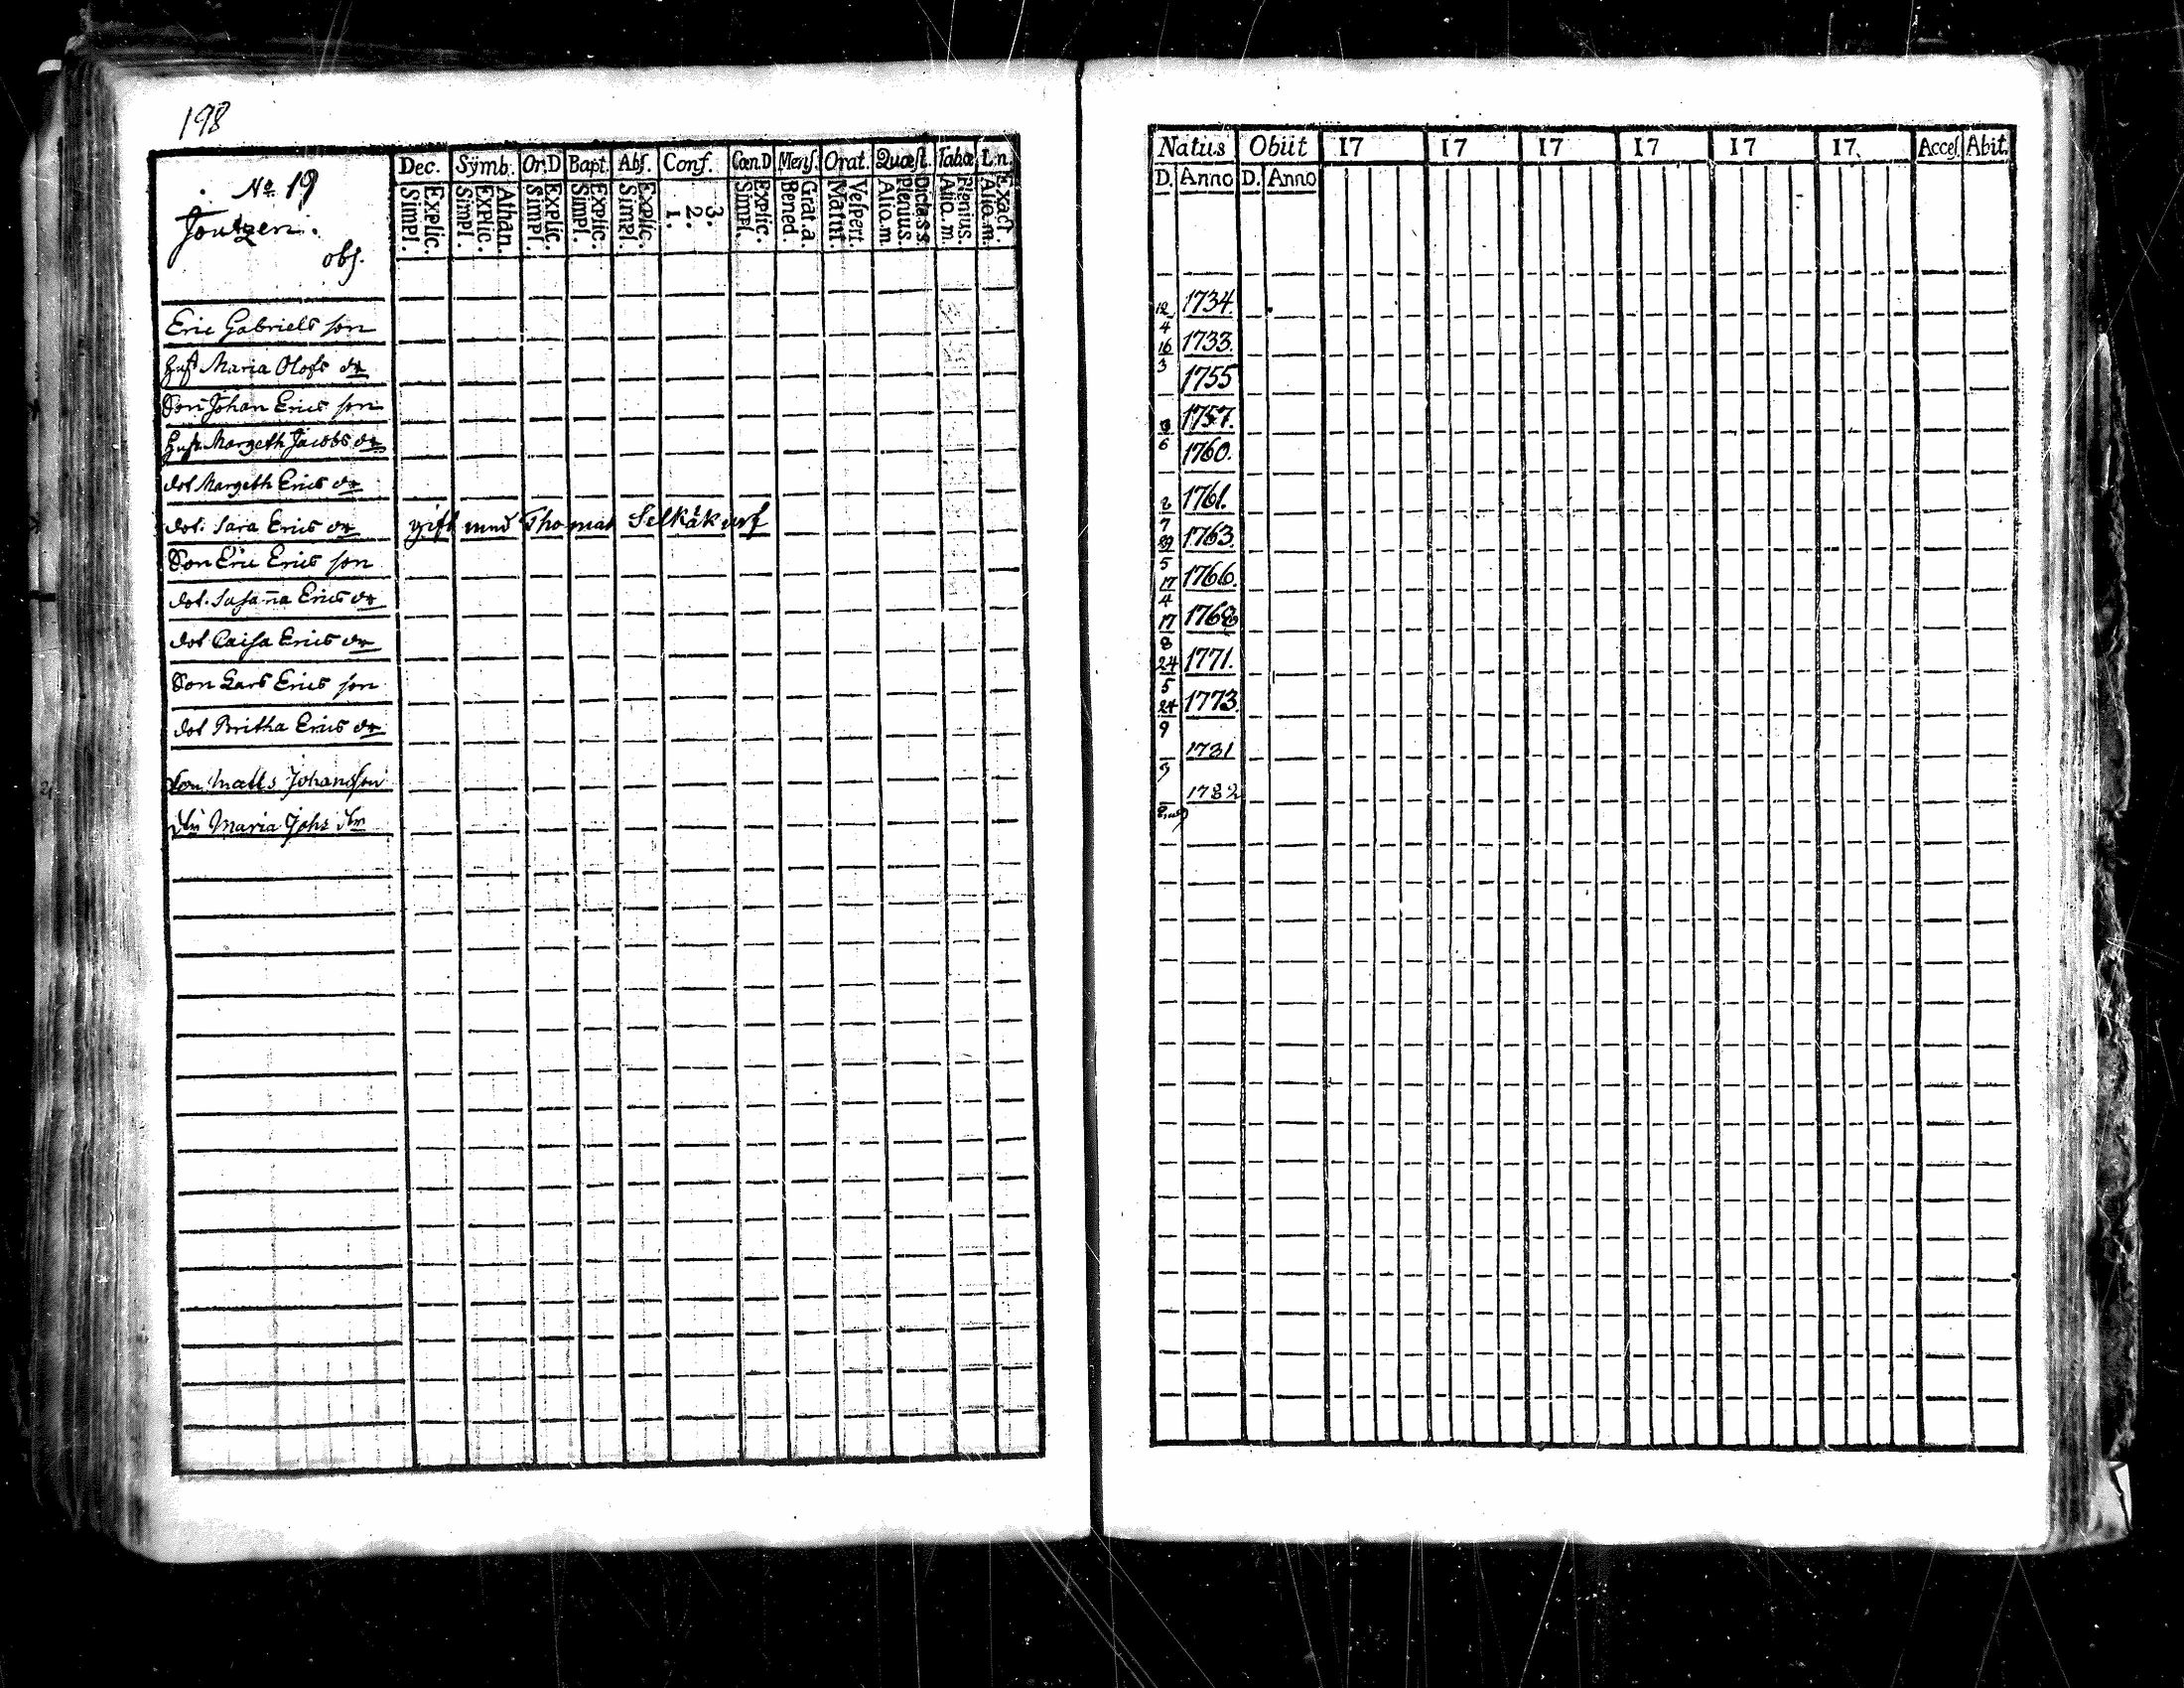 198
No 19
Joutzen.
obs.
Dec. Symb. Or.D Bapt. Abs. Conf. Cœn.D Mens. Orat. Quæst. Tabœ L.n.
Simpl. Explic. Simpl. Explic. Athan. Simpl. Explic. Simpl. Explic. Simpl. Explic. 1. 2. 3. Simpl. Explic. Bened. Grat.a. Matut. Vespert. Alio.m. Plenius. Dicta.s.s. Alio.m. Plenius. Alio.m. Exact
Eric Gabriels son
hust Maria Olofs dr
Son Johan Erics son
hust Margeth Jacobs dr
dot Margeth Erics dr
dot. Sara Erics dr gift med Thomas Selkäk
Son Eric Erics son
dot. Susanna Erics dr
dot Caisa Erics dr
Son Lars Erics son
dot Britha Erics dr
Son Matts Johansson
Maria Johs dr
Natus Obiit 17 17 17 17 17 17. Acces. Abit.
D. Anno D. Anno
12/4 1734.
16/3 1733.
1755
3/6 1757.
1760.
2/7 1761.
29/5 1763.
17/4 1766.
17/8 1768
24/5 1771.
24/9 1773
1781
1782